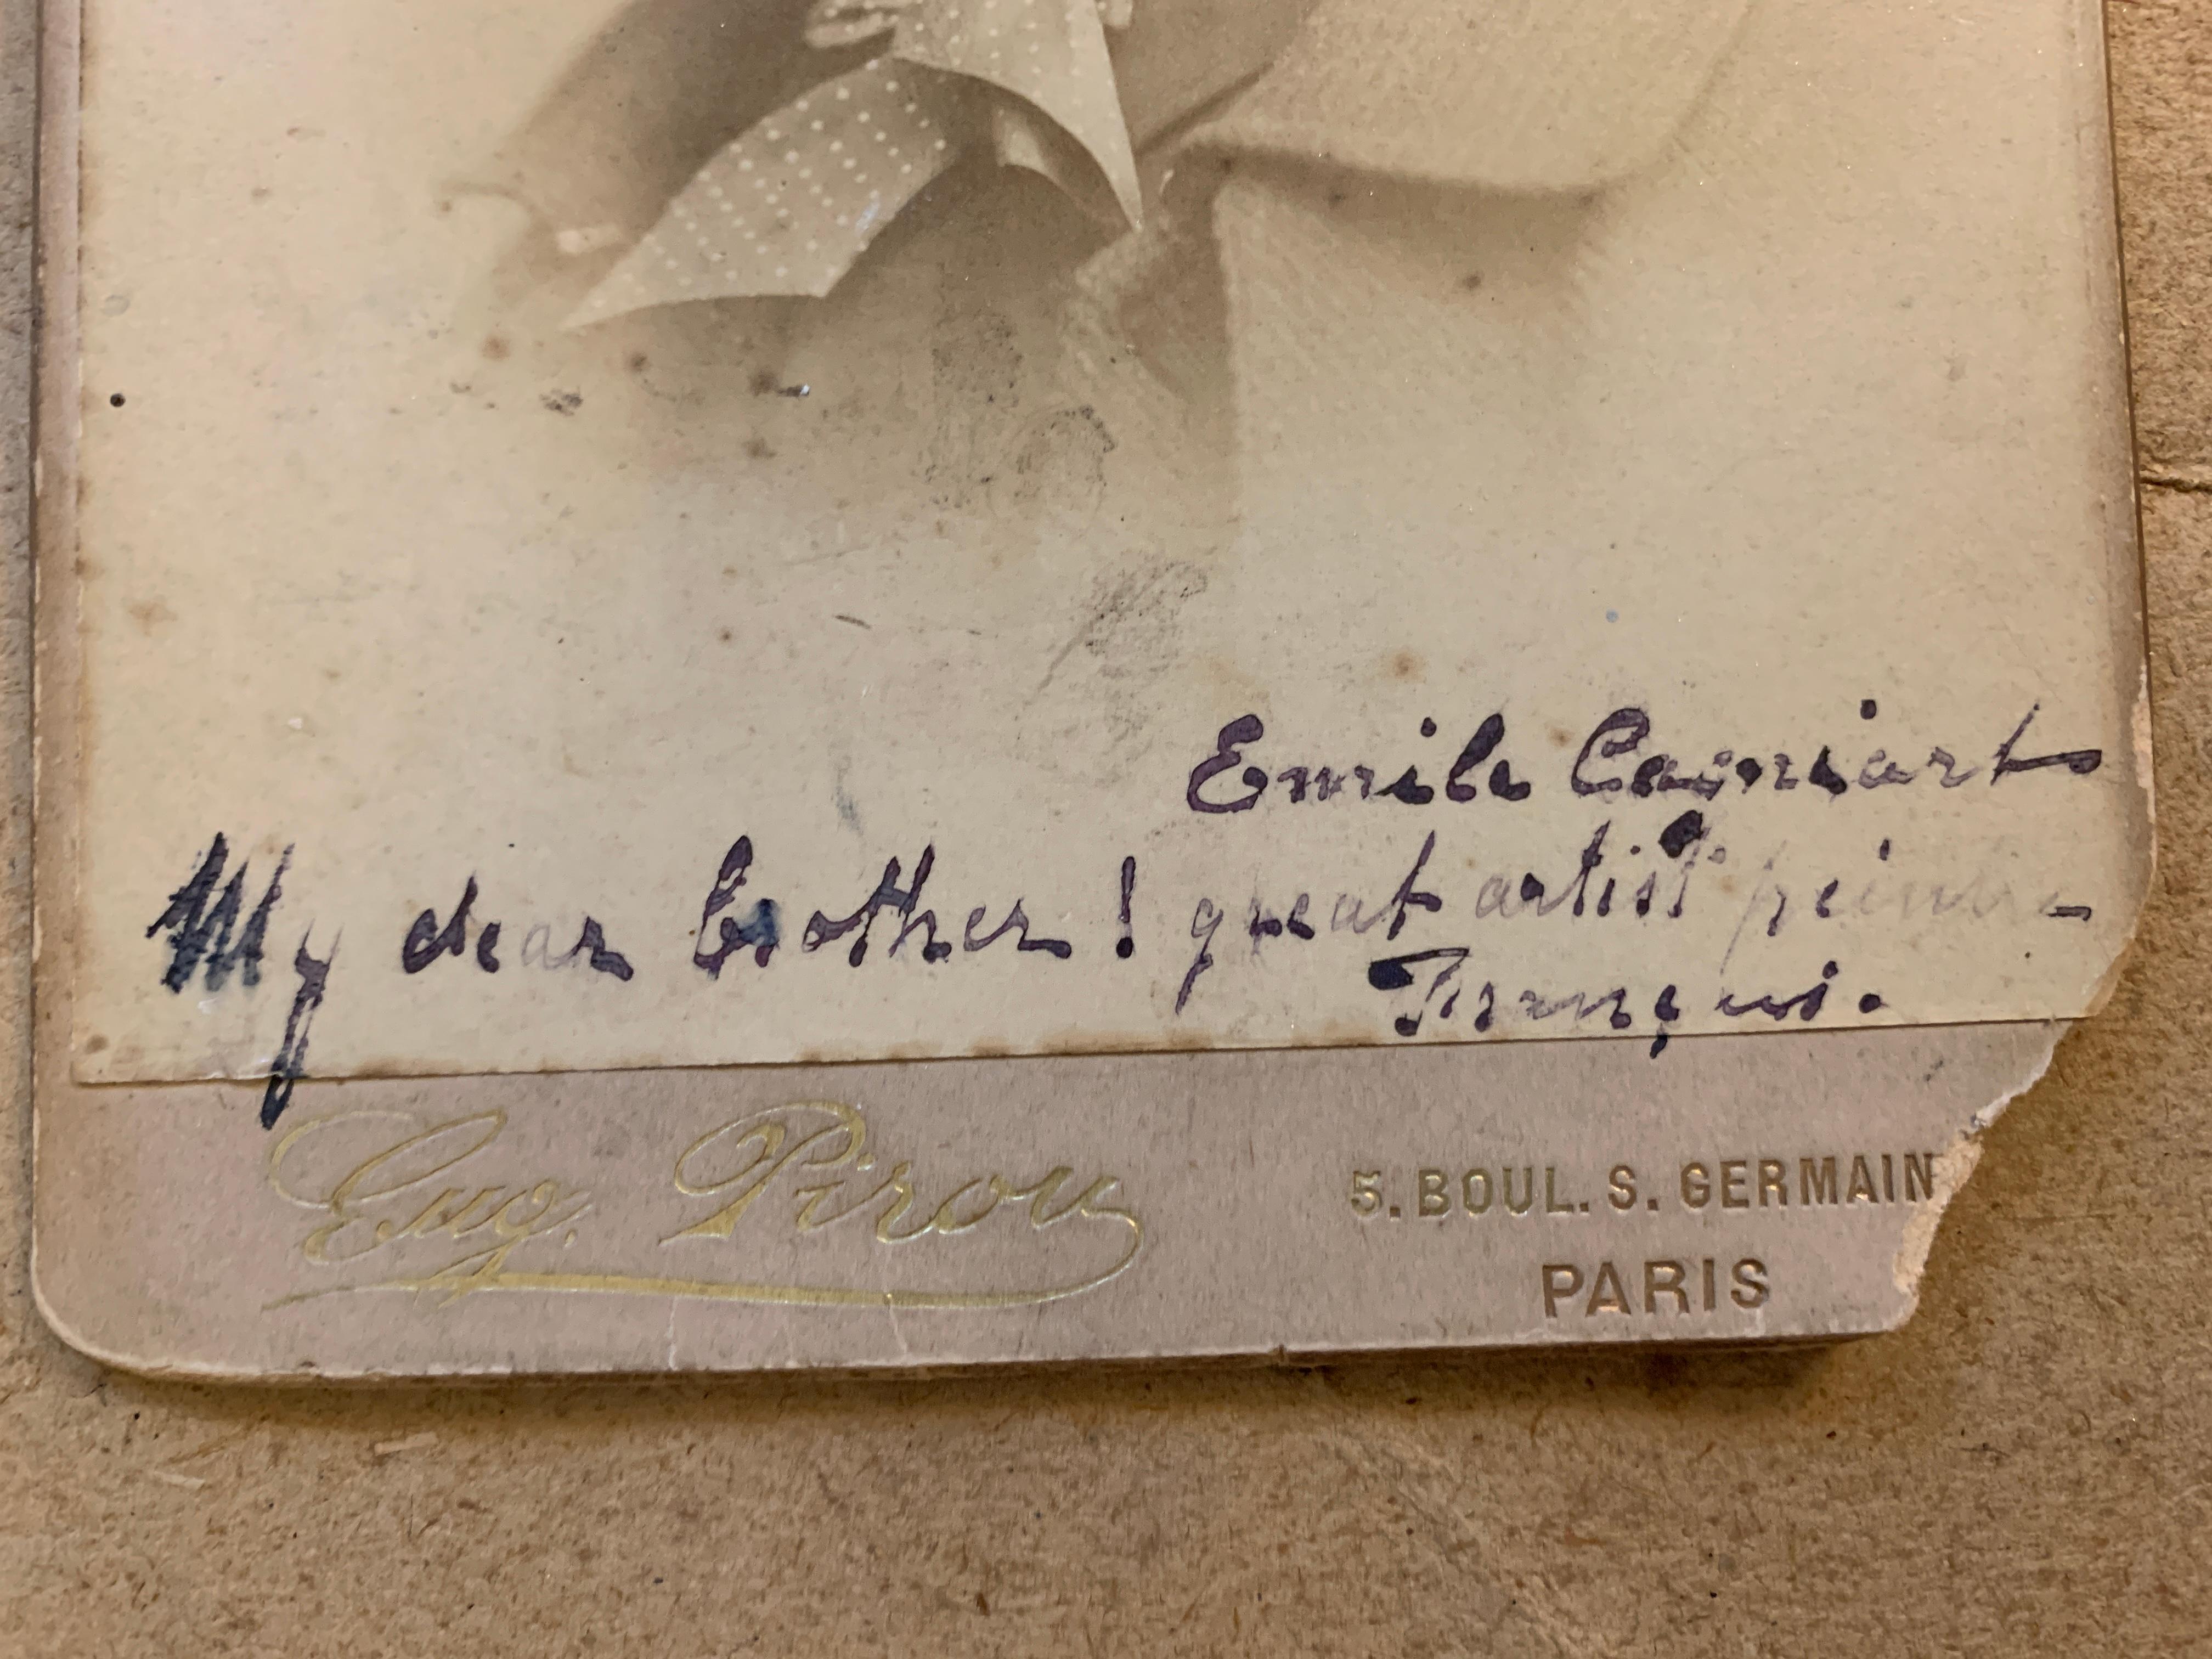 Emile Cagniart
My dear brother! great artist peintre
Français.
Eug. Pirou
5. BOUL. S. GERMAIN
PARIS